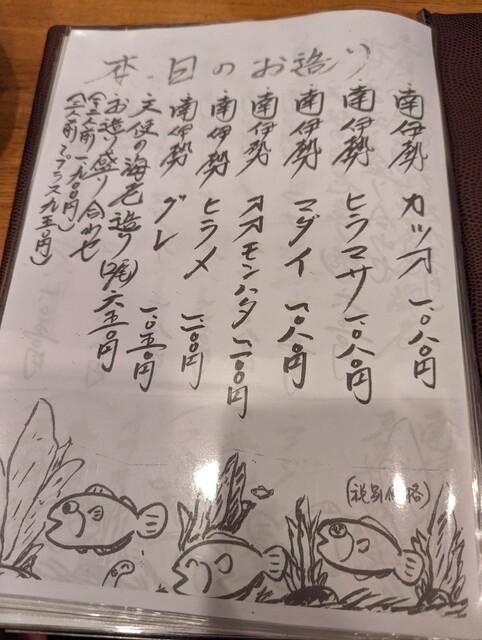 本日のお造り
南伊勢 カツオ 一、〇八〇円
南伊勢 ヒラマサ 一、〇八〇円
南伊勢 マダイ 一、〇八〇円
南伊勢 オオモンハタ 一、二〇〇円
南伊勢 ヒラメ 一、二〇〇円
南伊勢 グレ 一、〇五〇円
天使の海老造り (2尾) 六五〇円
お造り盛り合わせ
(二人前 一、九〇〇円)
(三人前 プラス九五〇円)
(税別価格)